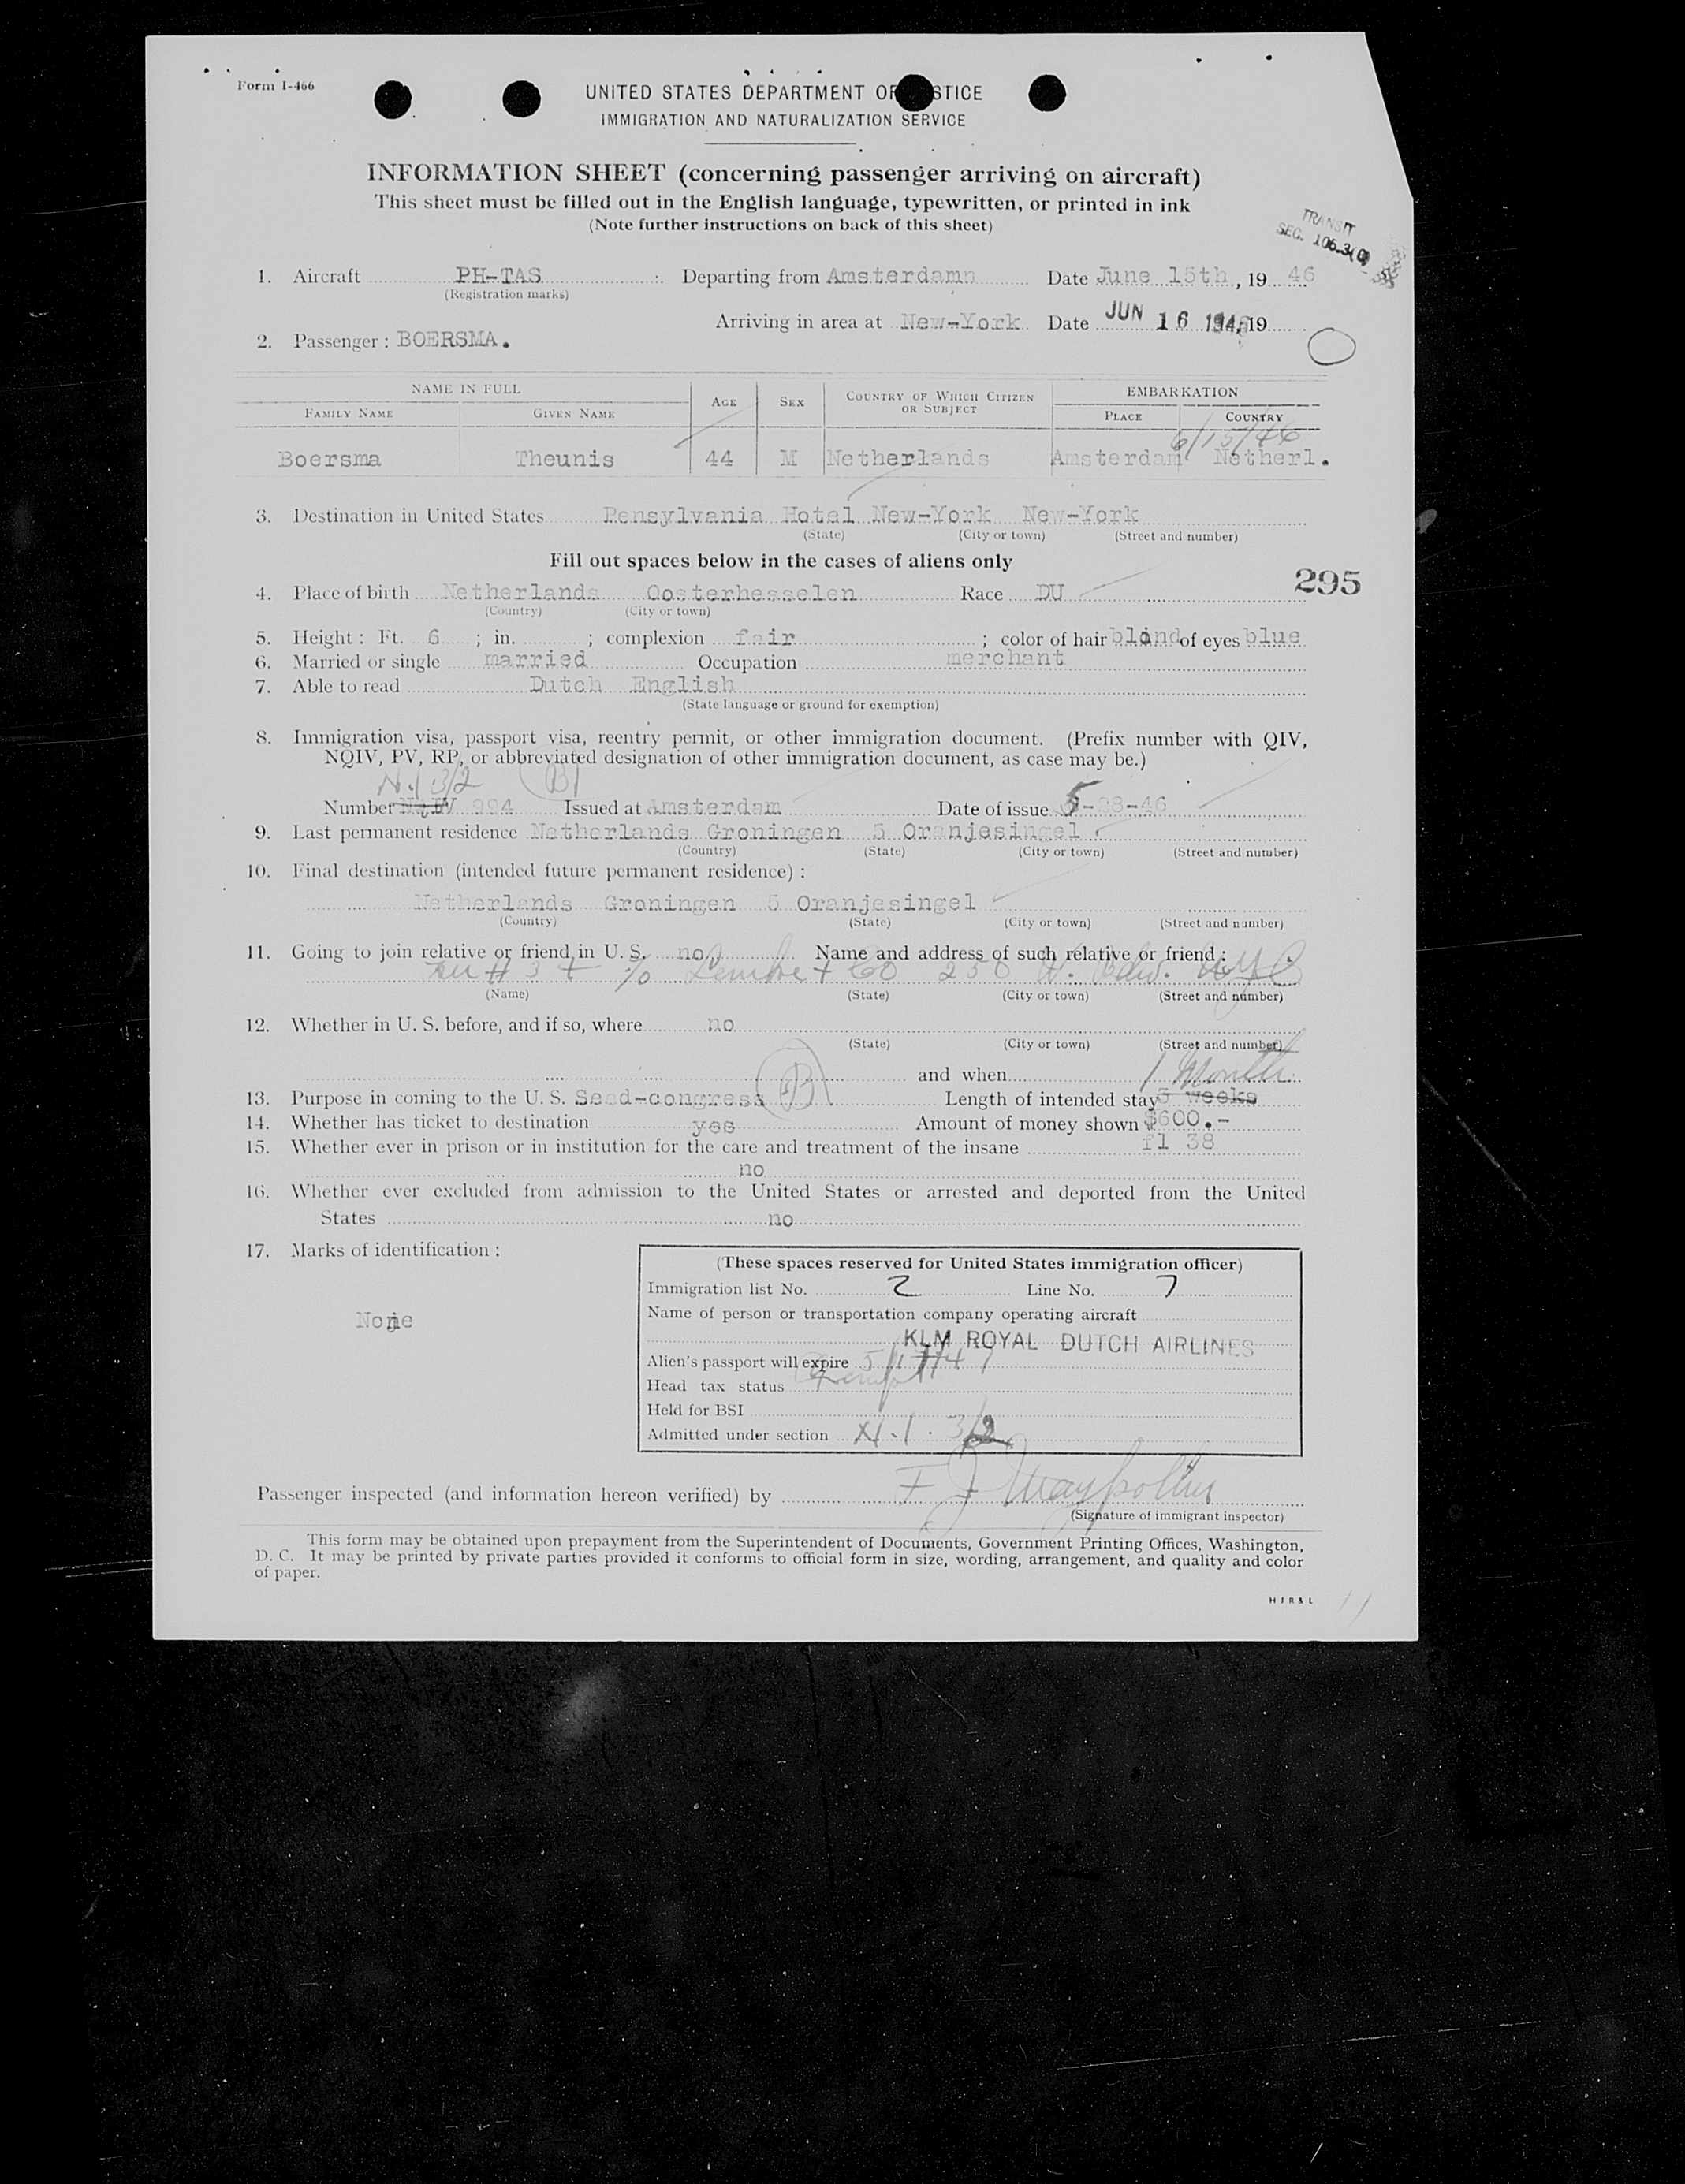 Form I-466
UNITED STATES DEPARTMENT OF STICE
IMMIGRATION AND NATURALIZATION SERVICE
INFORMATION SHEET (concerning passenger arriving on aircraft)
This sheet must be filled out in the English language, typewritten, or printed in ink
(Note further instructions on back of this sheet)
TRANSIT
SEC. 106.3(
1. Aircraft PH-TAS : Departing from Amsterdamn Date June 15th, 19 46
(Registration marks)
Arriving in area at New-York Date JUN 16 1946, 19
2. Passenger : BOERSMA.
NAME IN FULL AGE SEX COUNTRY OF WHICH CITIZEN OR SUBJECT EMBARKATION
FAMILY NAME GIVEN NAME PLACE COUNTRY
6/15/46
Boersma Theunis 44 M Netherlands Amsterdam Netherl.
3. Destination in United States Pensylvania Hotel New-York New-York
(State) (City or town) (Street and number)
Fill out spaces below in the cases of aliens only
295
4. Place of birth Netherlands Oosterhesselen Race DU
(Country) (City or town)
5. Height : Ft. 6 ; in. ; complexion fair ; color of hair blond of eyes blue
6. Married or single married Occupation merchant
7. Able to read Dutch English
(State language or ground for exemption)
8. Immigration visa, passport visa, reentry permit, or other immigration document. (Prefix number with QIV,
NQIV, PV, RP, or abbreviated designation of other immigration document, as case may be.)
3/2 (B)
Number 994 Issued at Amsterdam Date of issue 5-28-46
9. Last permanent residence Netherlands Groningen 5 Oranjesingel
(Country) (State) (City or town) (Street and number)
10. Final destination (intended future permanent residence) :
Netherlands Groningen 5 Oranjesingel
(Country) (State) (City or town) (Street and number)
11. Going to join relative or friend in U. S. no Name and address of such relative or friend :
# 3 % + Co 250 W. NYC
(Name) (State) (City or town) (Street and number)
12. Whether in U. S. before, and if so, where no
(State) (City or town) (Street and number)
and when 1 Month
13. Purpose in coming to the U. S. Seed-congress B Length of intended stay 3 weeks
14. Whether has ticket to destination yes Amount of money shown $600.-
15. Whether ever in prison or in institution for the care and treatment of the insane fl 38
no
16. Whether ever excluded from admission to the United States or arrested and deported from the United
States no
17. Marks of identification :
None
(These spaces reserved for United States immigration officer)
Immigration list No. 2 Line No. 7
Name of person or transportation company operating aircraft
KLM ROYAL DUTCH AIRLINES
Alien's passport will expire 5/17/47
Head tax status Exempt
Held for BSI
Admitted under section 3/2
Passenger inspected (and information hereon verified) by F J
(Signature of immigrant inspector)
This form may be obtained upon prepayment from the Superintendent of Documents, Government Printing Offices, Washington,
D. C. It may be printed by private parties provided it conforms to official form in size, wording, arrangement, and quality and color
of paper.
HJR&L